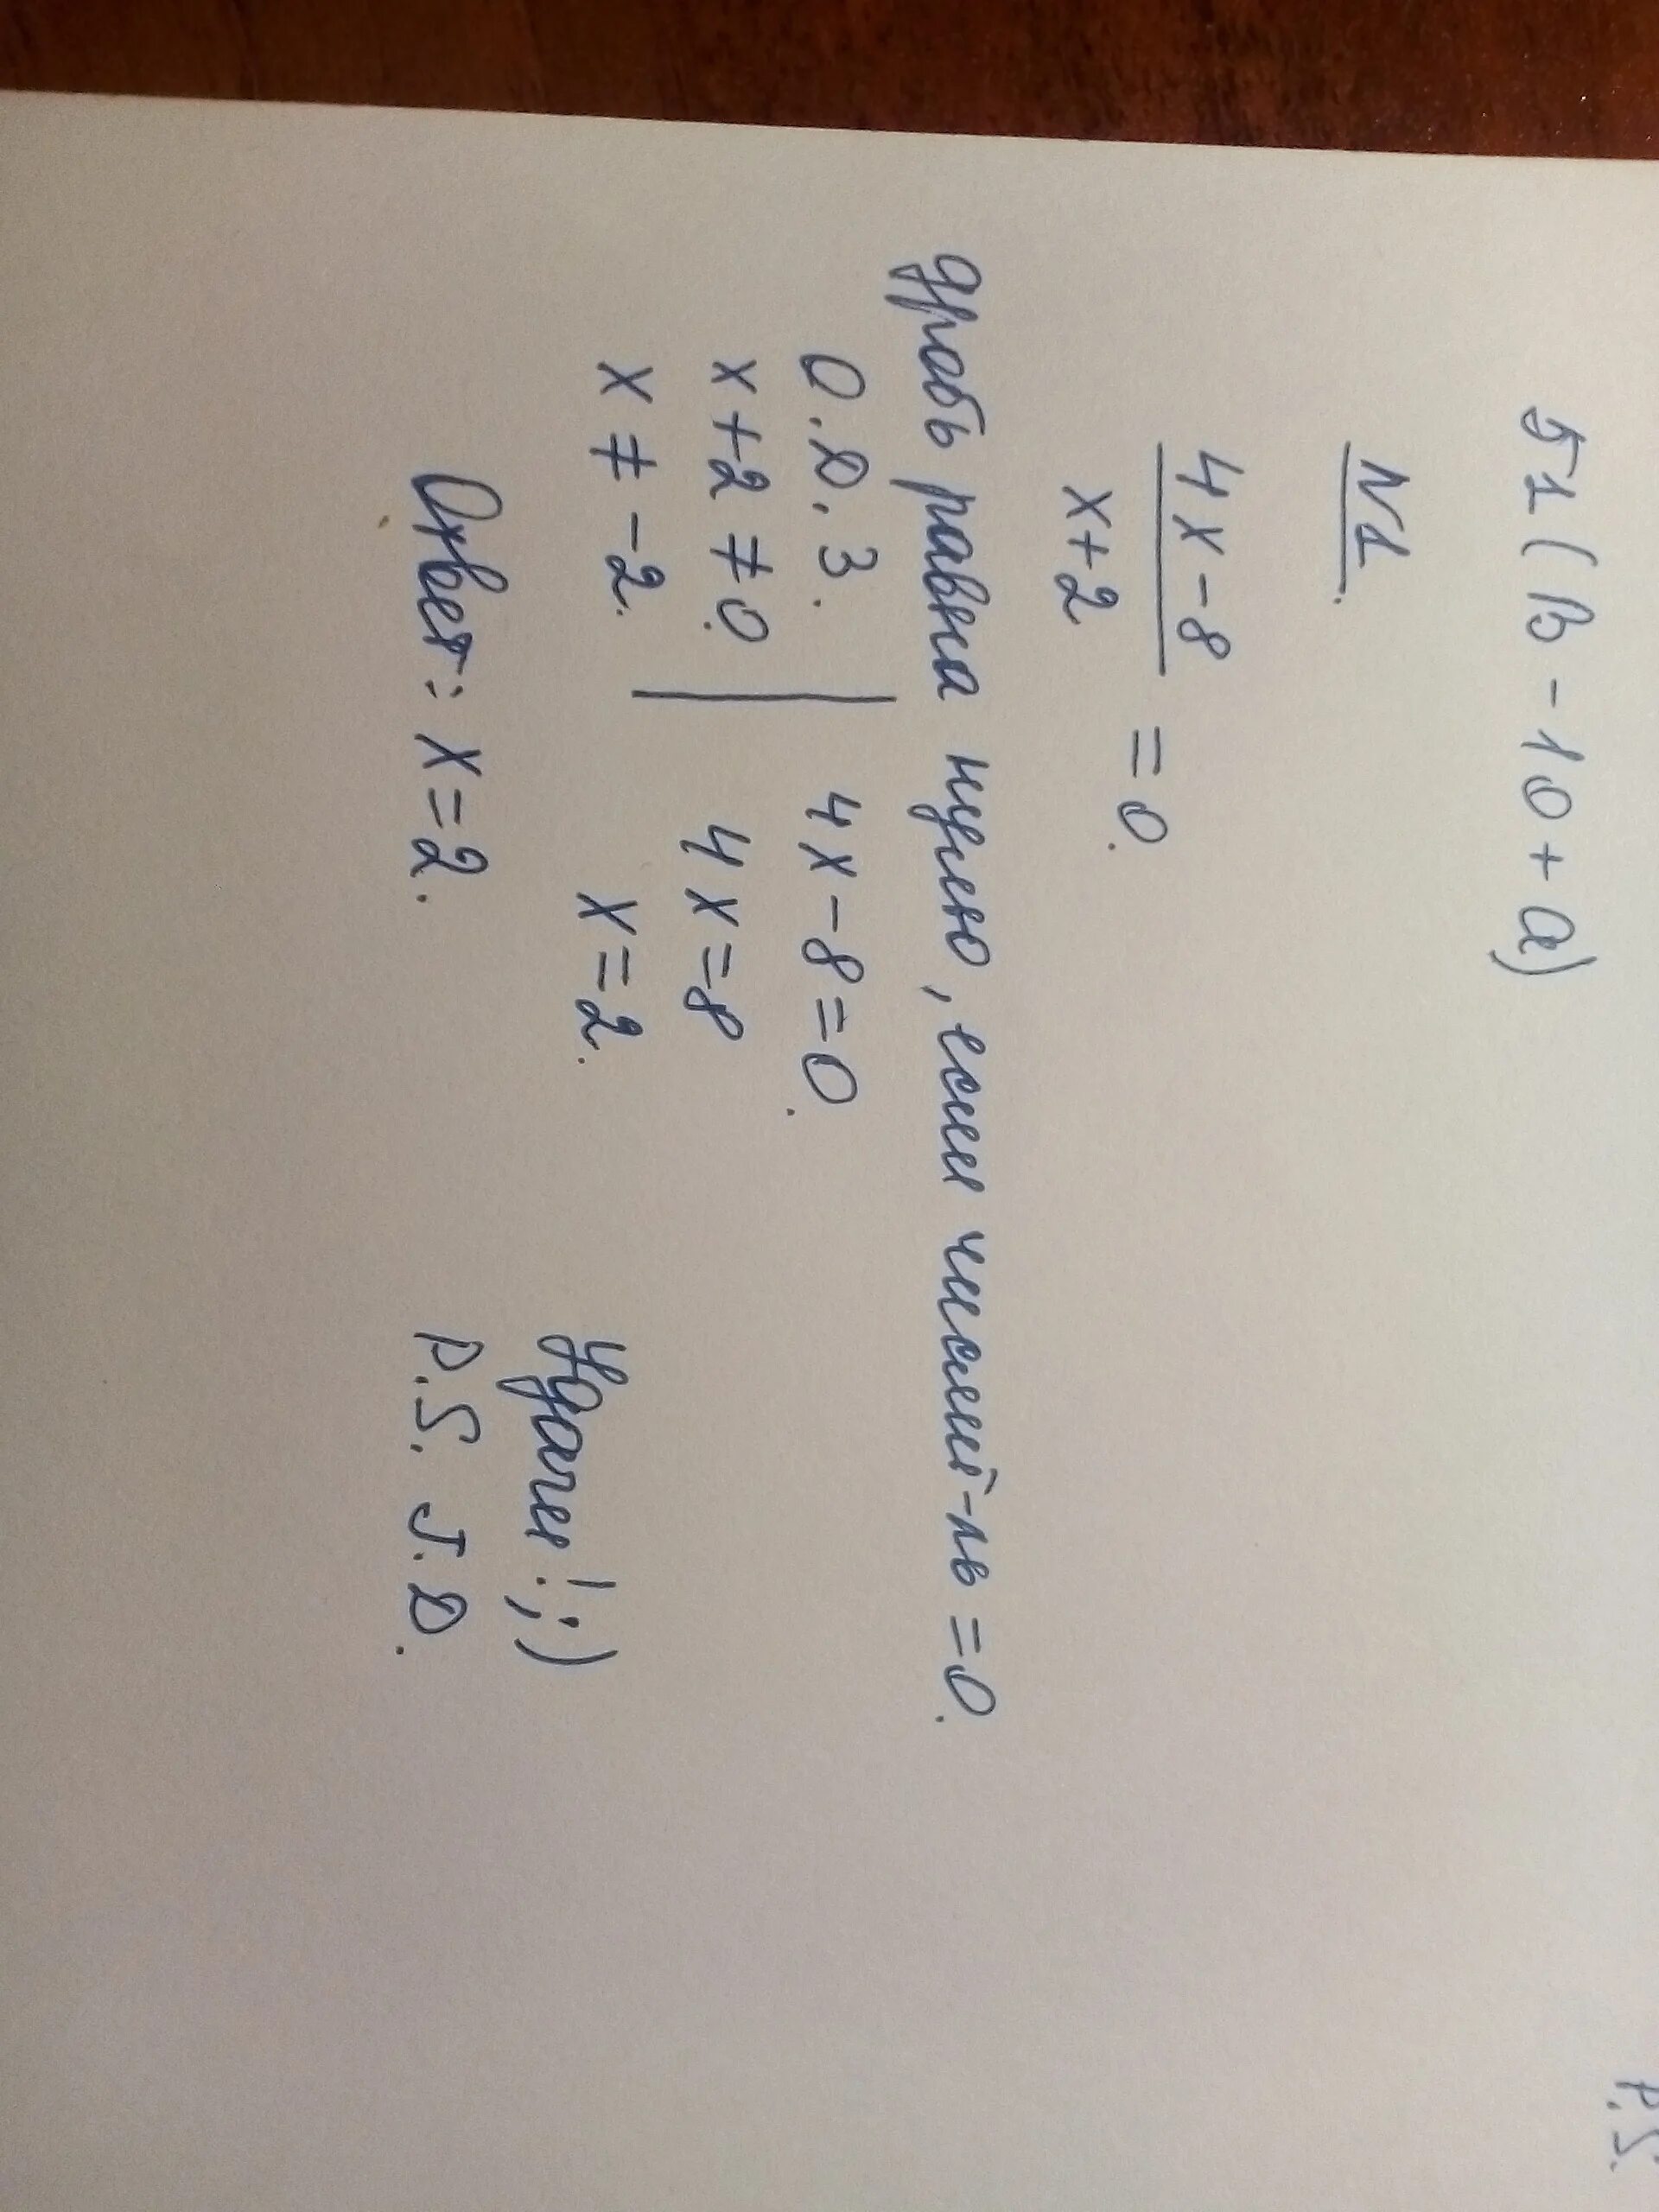 Б1 (В-10+а)
N1.
4x-8
x+2
=0.
дробь равна нулю, если числит-ль =0.
О.D.З. | 4x-8=0.
x+2≠0. 4x=8
x≠-2. x=2.
Ответ: x=2.
Удачи! ;)
P.S. J.D.
P.S.